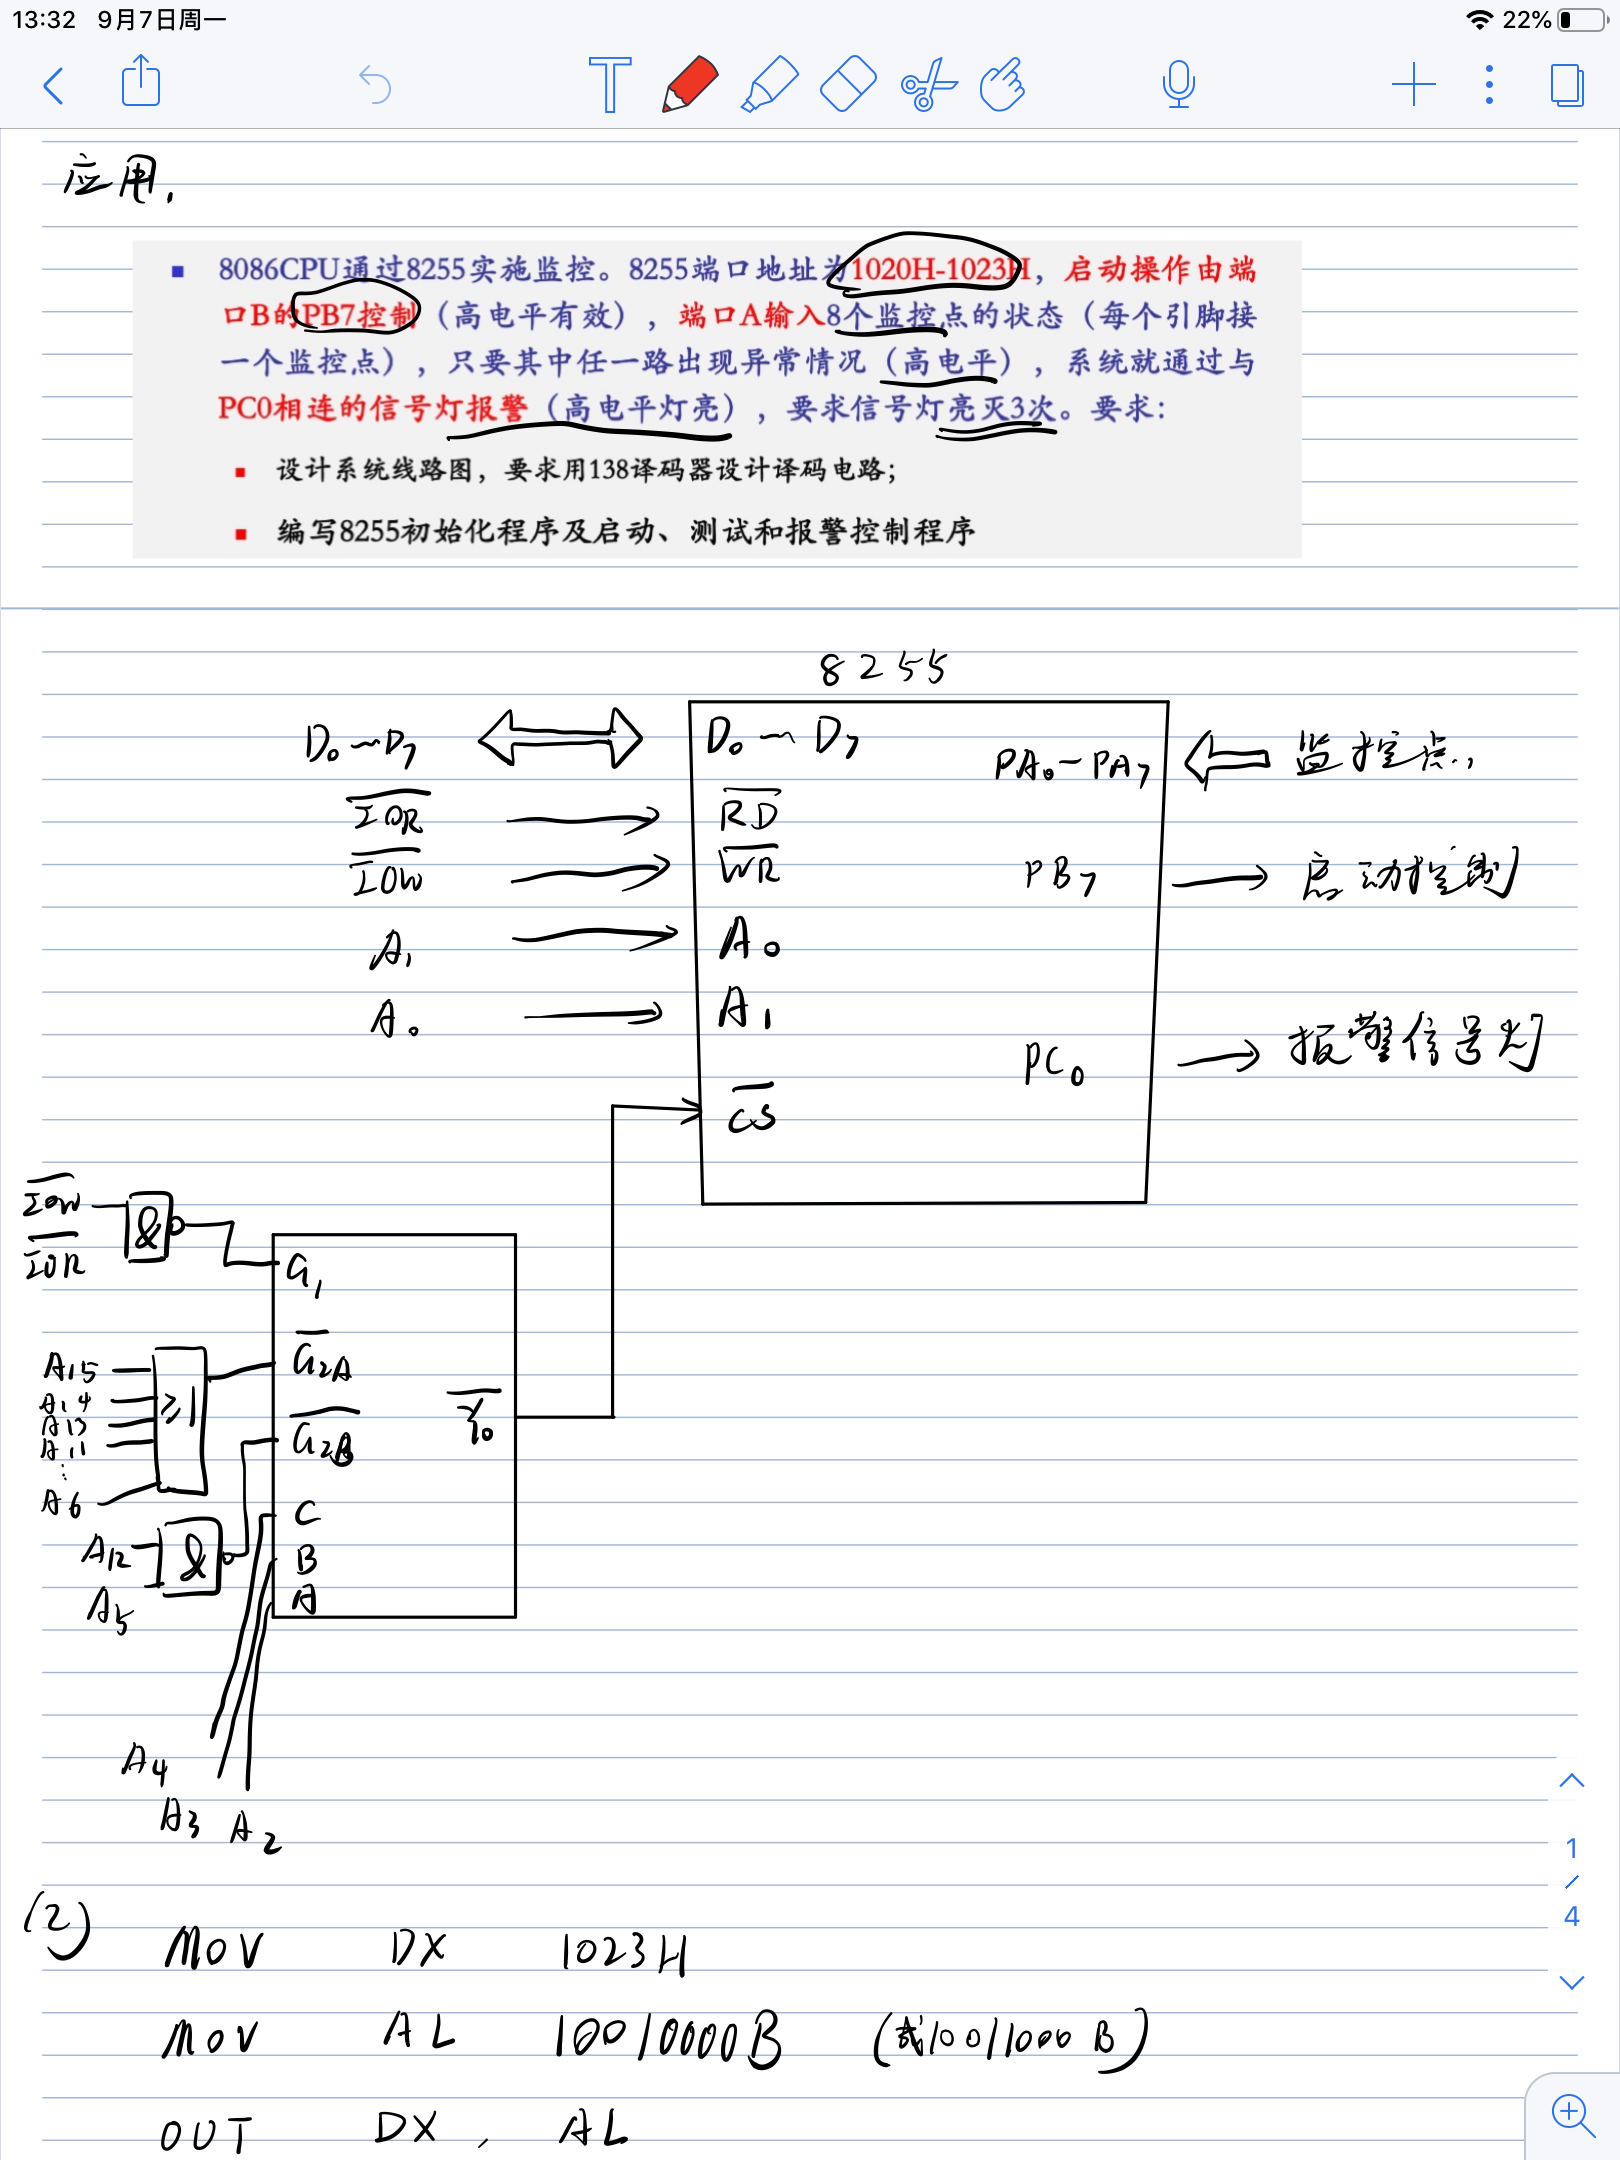 13:32 9月7日周一
22%
应用.
8086CPU通过8255实施监控。8255端口地址为1020H-1023H，启动操作由端
口B的PB7控制（高电平有效），端口A输入8个监控点的状态（每个引脚接
一个监控点），只要其中任一路出现异常情况（高电平），系统就通过与
PC0相连的信号灯报警（高电平灯亮），要求信号灯亮灭3次。要求：
设计系统线路图，要求用138译码器设计译码电路；
编写8255初始化程序及启动、测试和报警控制程序
8255
D₀~D₇ D₀~D₇ PA₀~PA₇ 监控点.
I̅O̅R̅ R̅D̅
I̅O̅W̅ W̅R̅ PB₇ 启动控制
A₁ A₀
A₀ A₁
PC₀ 报警信号灯
C̅S̅
I̅O̅W̅ &
I̅O̅R̅
G₁
A15 G̅2A
A14 ≥1
A13
A11 G̅2B Y̅₀
⋮
A6 C
A12 & B
A5 A
A4
A3 A2
1
/
4
(2) MOV DX 1023H
MOV AL 10010000B (或10011000B)
OUT DX , AL